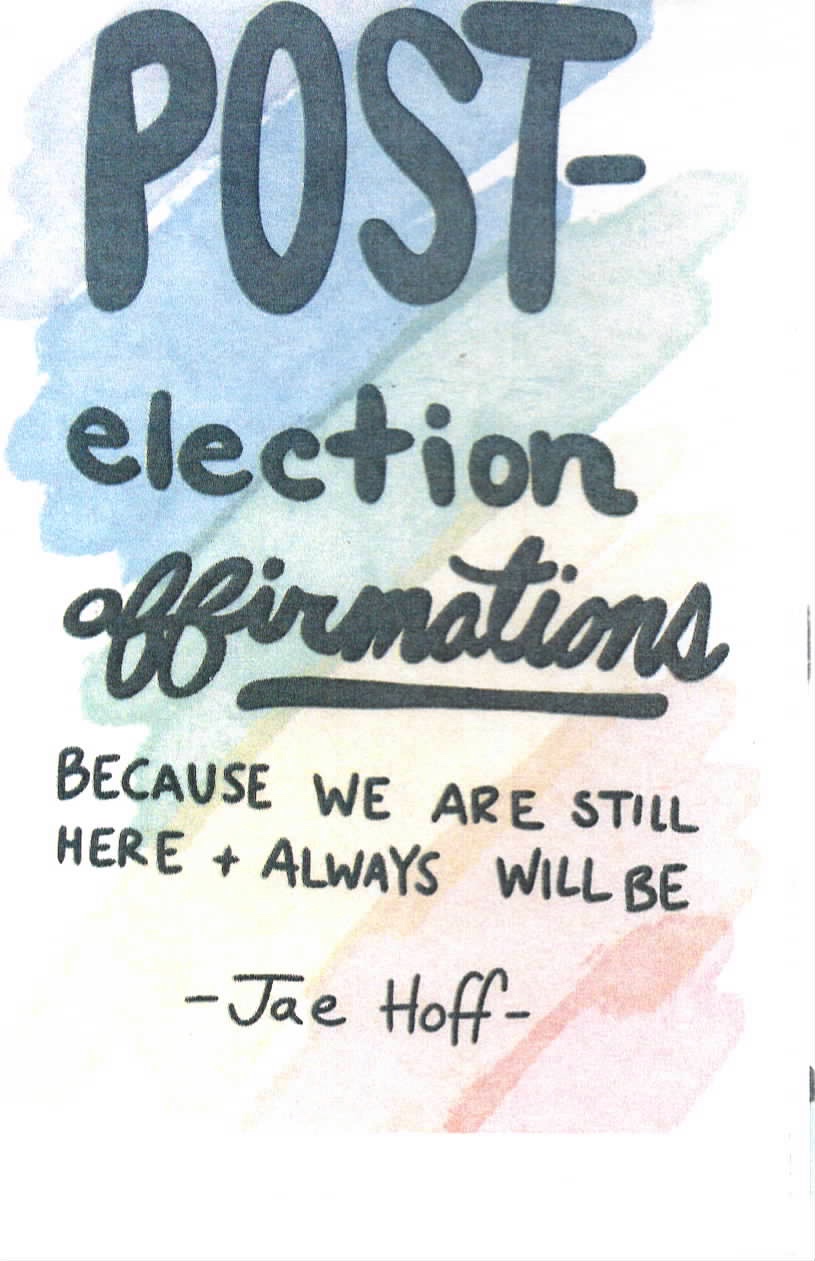 POST-
election
affirmations
BECAUSE WE ARE STILL
HERE + ALWAYS WILL BE
-Jae Hoff-